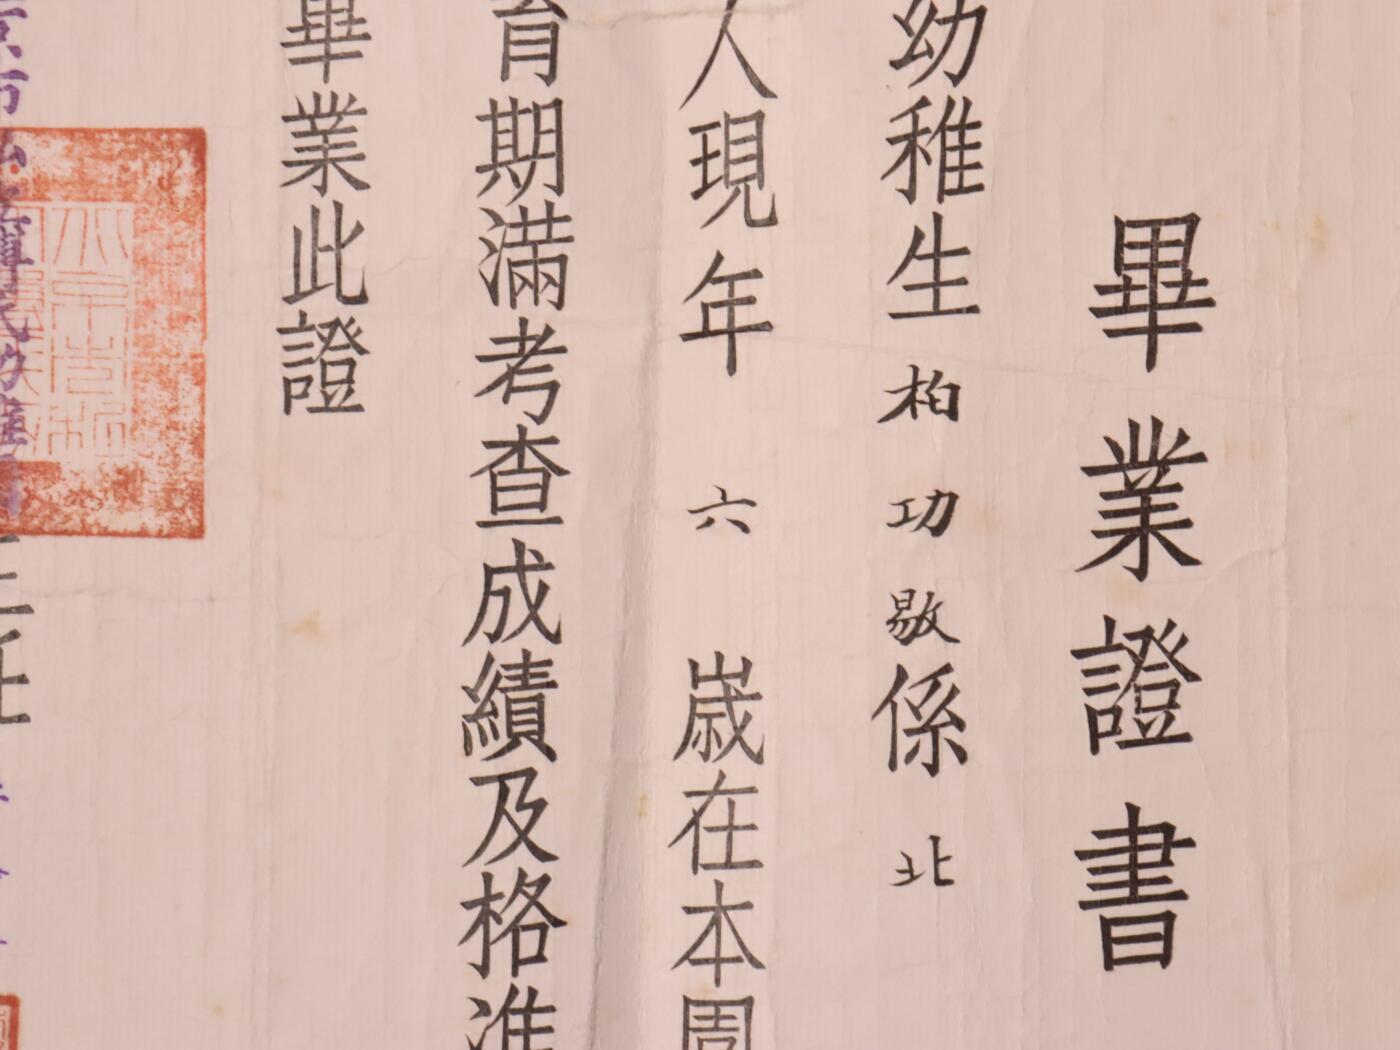 畢業證書
幼稚生柏功敭係北
人現年六歲在本園
育期滿考查成績及格准
畢業此證
主任